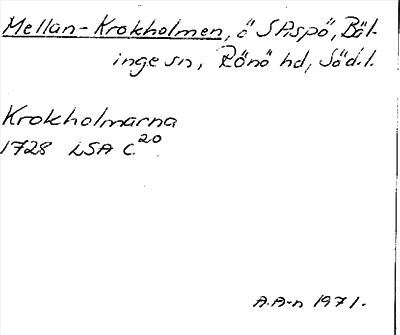 Mellan-Krokholmen, ö S Aspö, Bäl-
inge sn, Rönö hd, Söd.l.
Krokholmarna
1728 LSA C 20
A.A-n 1971.